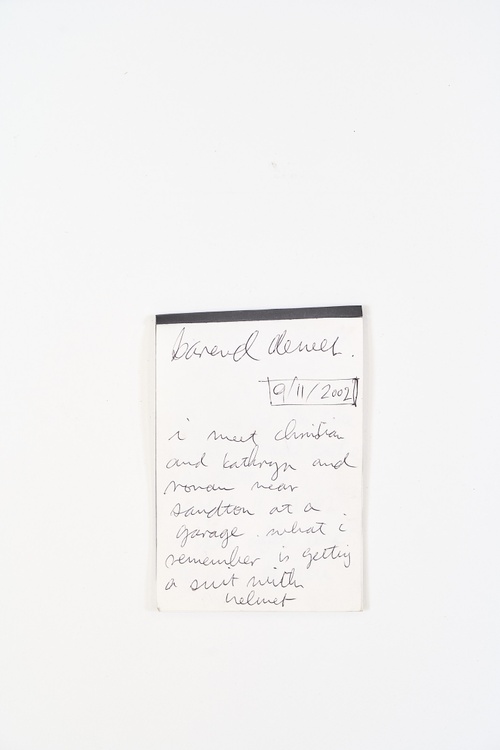 barend de wet.
9/11/2002
i meet christian
and kathryn and
rowan near
sandton at a
garage. what i
remember is getting
a suit with
helmet